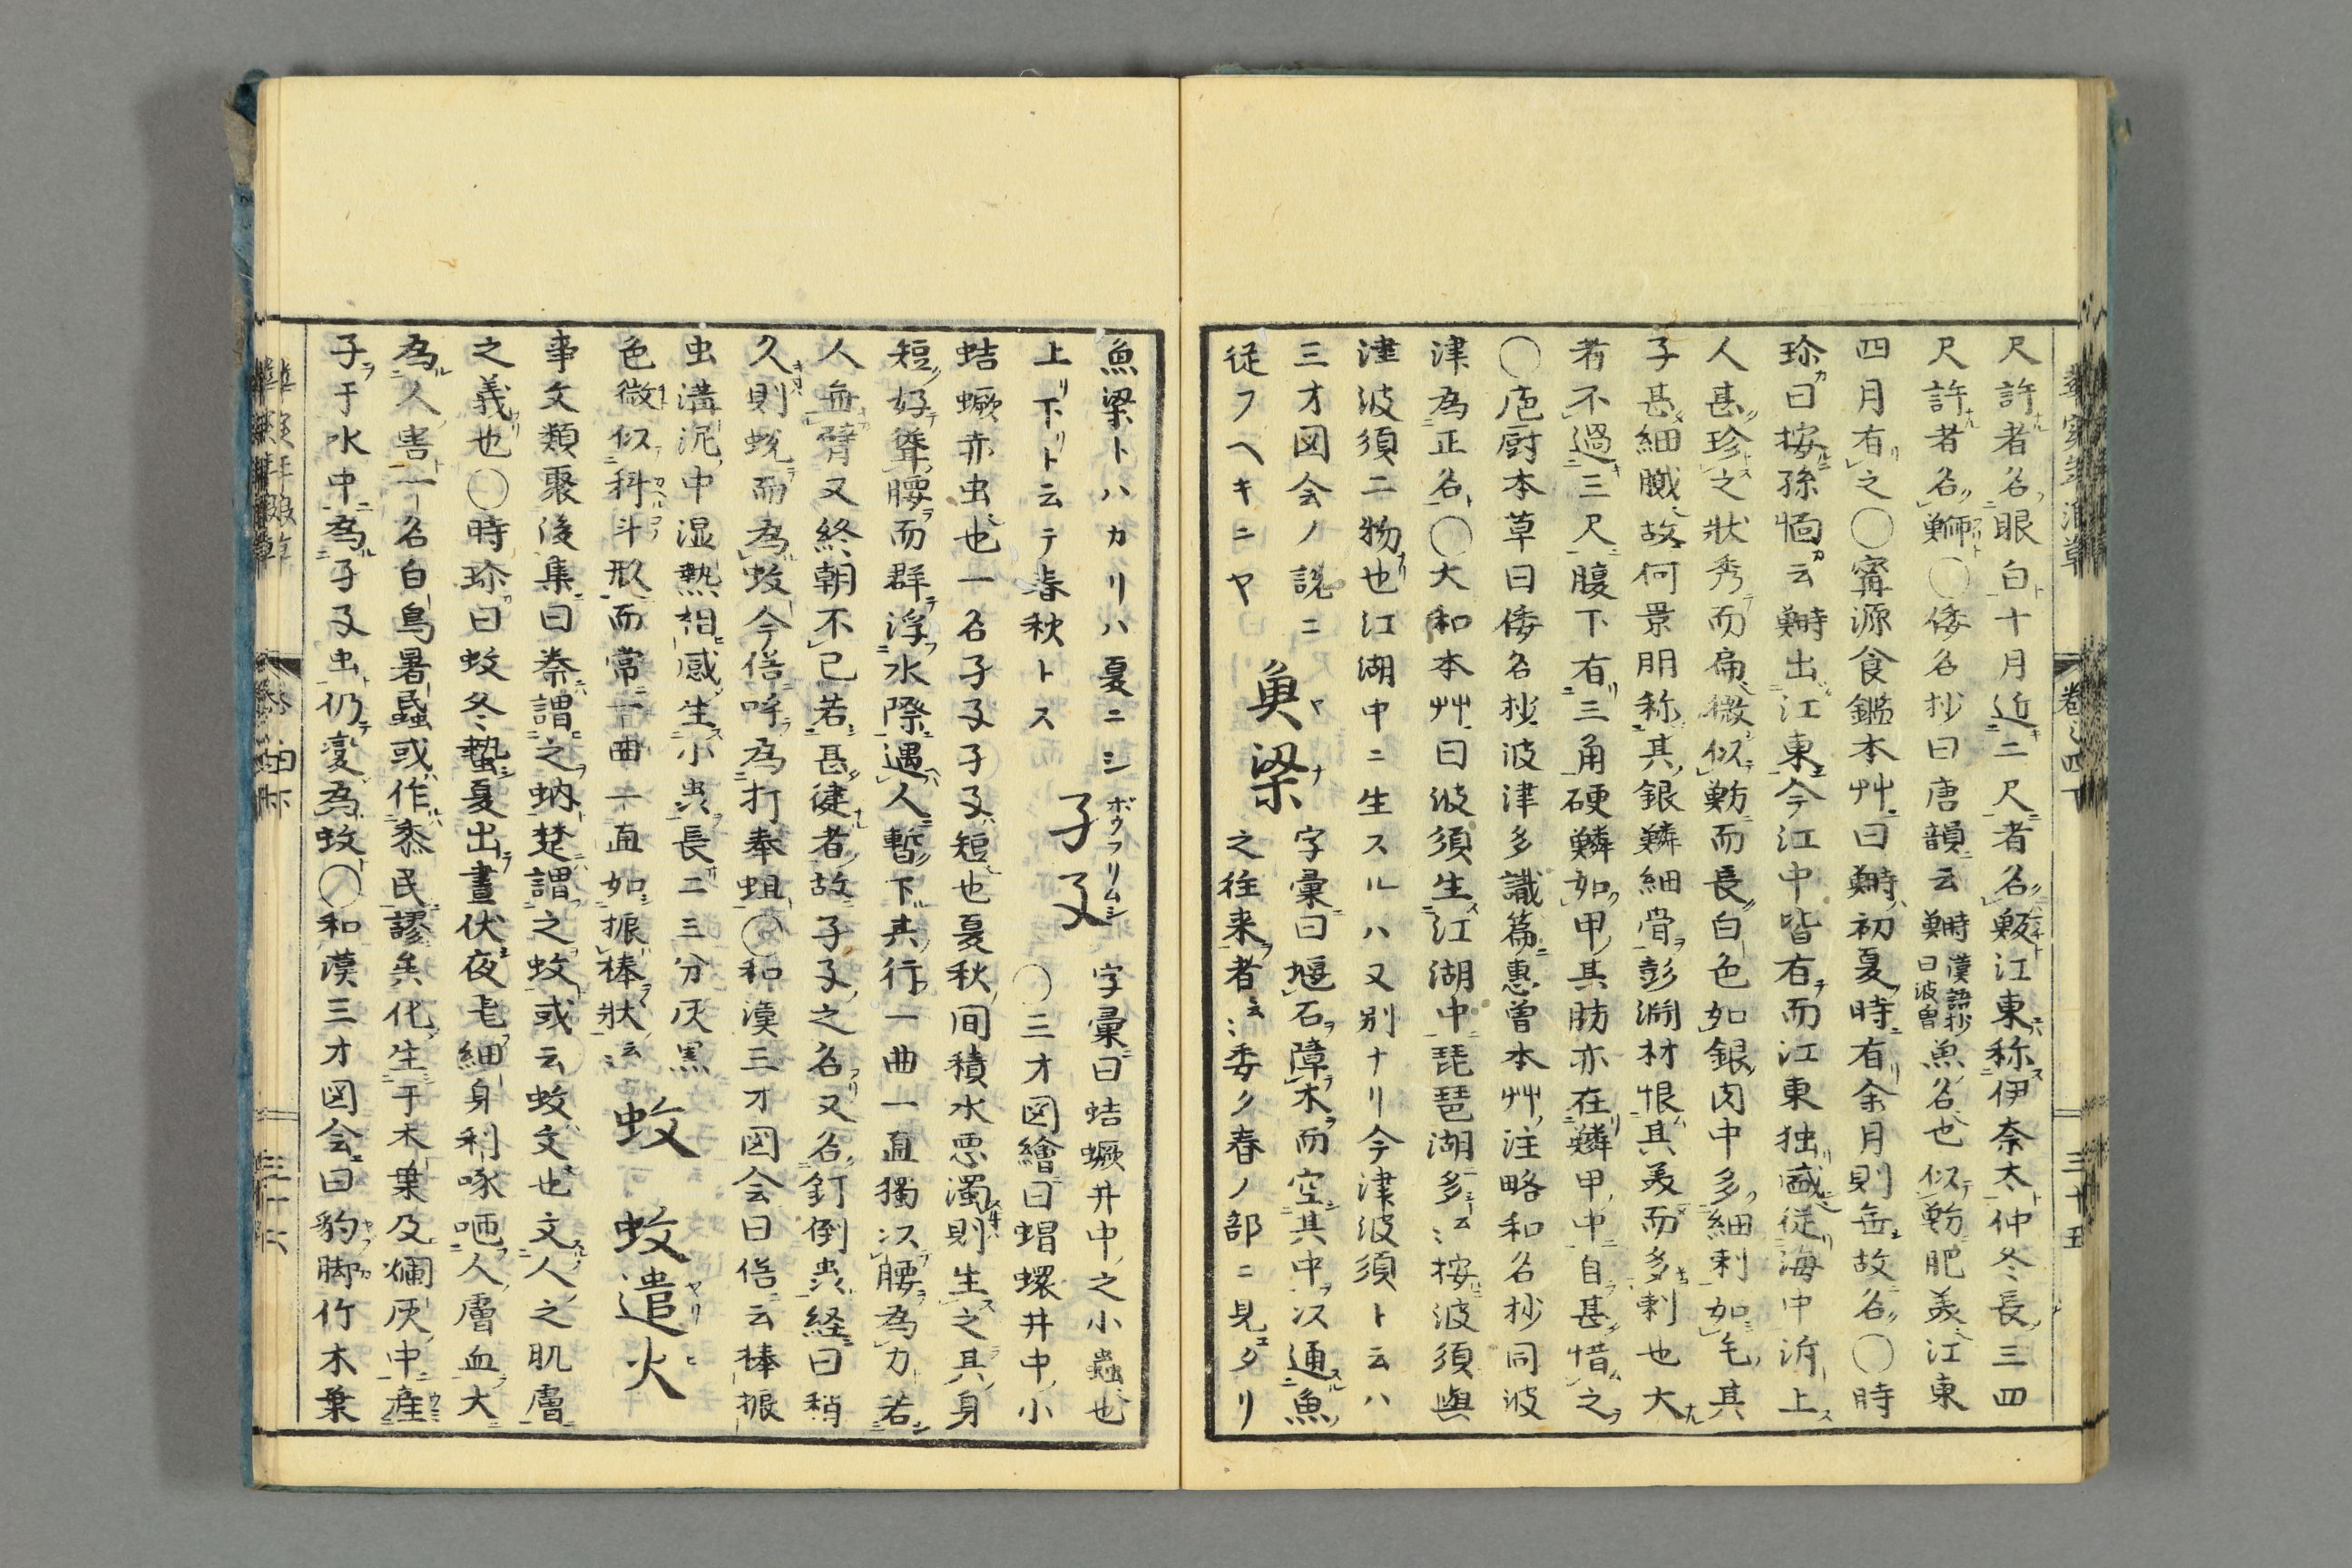 尺許者名眼白十月近二尺者名鰒江東称伊奈太仲冬長三四
尺許者名鰤〇倭名抄曰唐韻云鰣漢語抄曰波曽魚名也似魴肥美江東
四月有之〇寗源食鑑本艸曰鰣初夏時有余月則無故名〇時
珍曰按孫愐云鰣出江東今江中皆有而江東独盛従海中泝上
人甚珍之状秀而扁微似魴而長白色如銀肉中多細刺如毛其
子甚細膩故何景明称其銀鱗細骨彭淵材恨其美而多刺也大
者不過三尺腹下有三角硬鱗如甲其肪亦在鱗甲中自甚惜之
〇庖厨本草曰倭名抄波津多識篇恵曽本艸注略和名抄同波
津為正名〇大和本艸曰波須生江湖中琵琶湖多云々按波須與
津波須二物也江湖中ニ生スルハ又別ナリ今津波須ト云ハ
三才図会ノ説ニ
従フヘキニヤ
魚梁
字彙曰堰石障木而空其中以通魚
之往来者云々委ク春ノ部ニ見エタリ
巻之四下
三十五
魚梁トハカリハ夏ニシ
上下ト云テ春秋トス
孑孒
ボウフリムシ
字彙曰蛣蟩井中之小蟲也
〇三才図繪曰蜎蠉井中小
蛣蟩亦虫也一名孑孒孑孒短也夏秋間積水悪濁則生之其身
短好聳腰而群浮水際遇人暫下其行一曲一直獨以腰為力若
人無臂又終朝不已若甚健者故孑孑之名又名釘倒虫経曰稍
久則蛻而為蚊今俗呼為打拳蛆〇和漢三才図会曰俗云棒振
虫溝泥中湿熱相感生小虫長二三分灰黒
色微似科斗形而常一曲一直如振棒状云々
蚊
蚊遣火
事文類聚後集曰秦謂之蚋楚謂之蚊或云蚊文也文人之肌膚
之義也〇時珍曰蚊冬蟄夏出晝伏夜飛細身利喙咂人膚血大
為人害一名白鳥暑䘇或作黍民謬矣化生于木葉及爛灰中産
子于水中為孑孒虫仍変為蚊〇和漢三才図会曰豹脚竹木葉